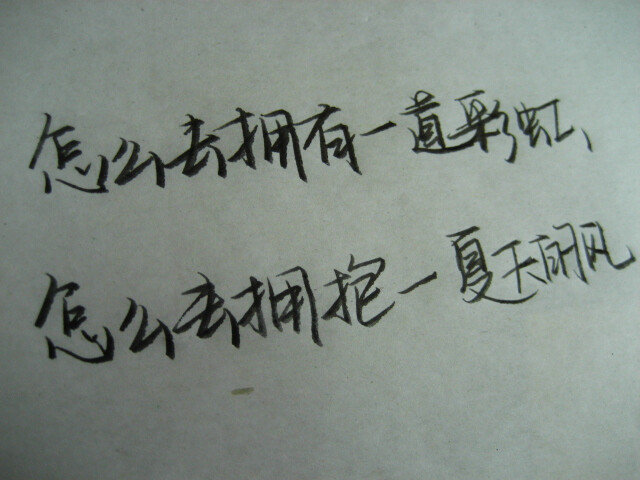 怎么去拥有一道彩虹、
怎么去拥抱一夏天的风